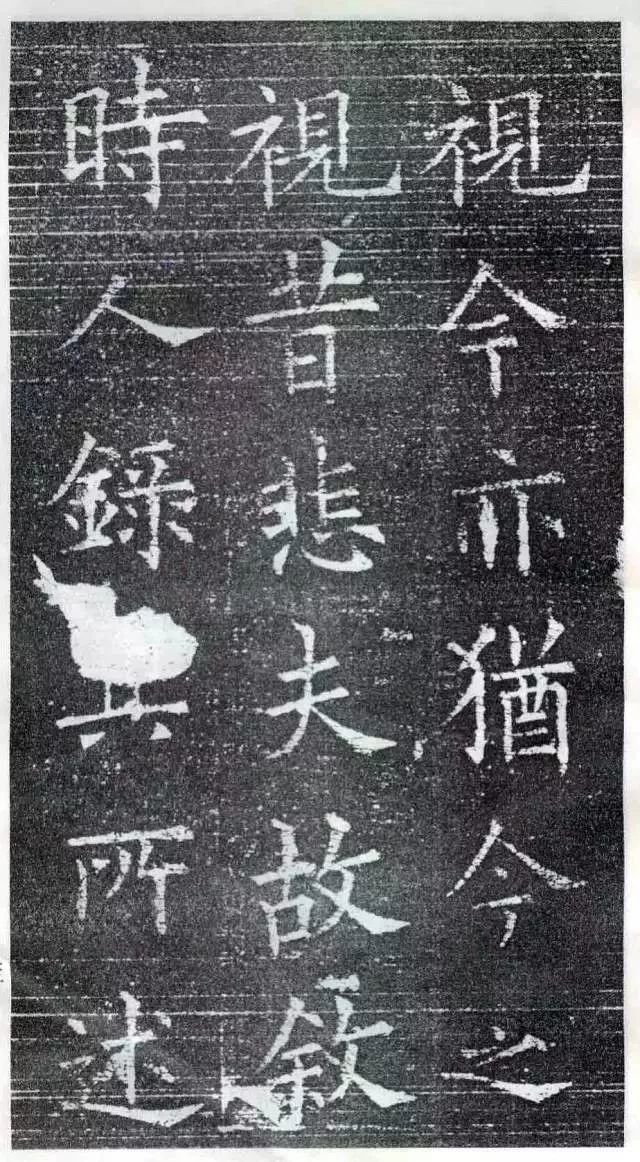 視今亦猶今之
視昔悲夫故敘
時人錄其所述